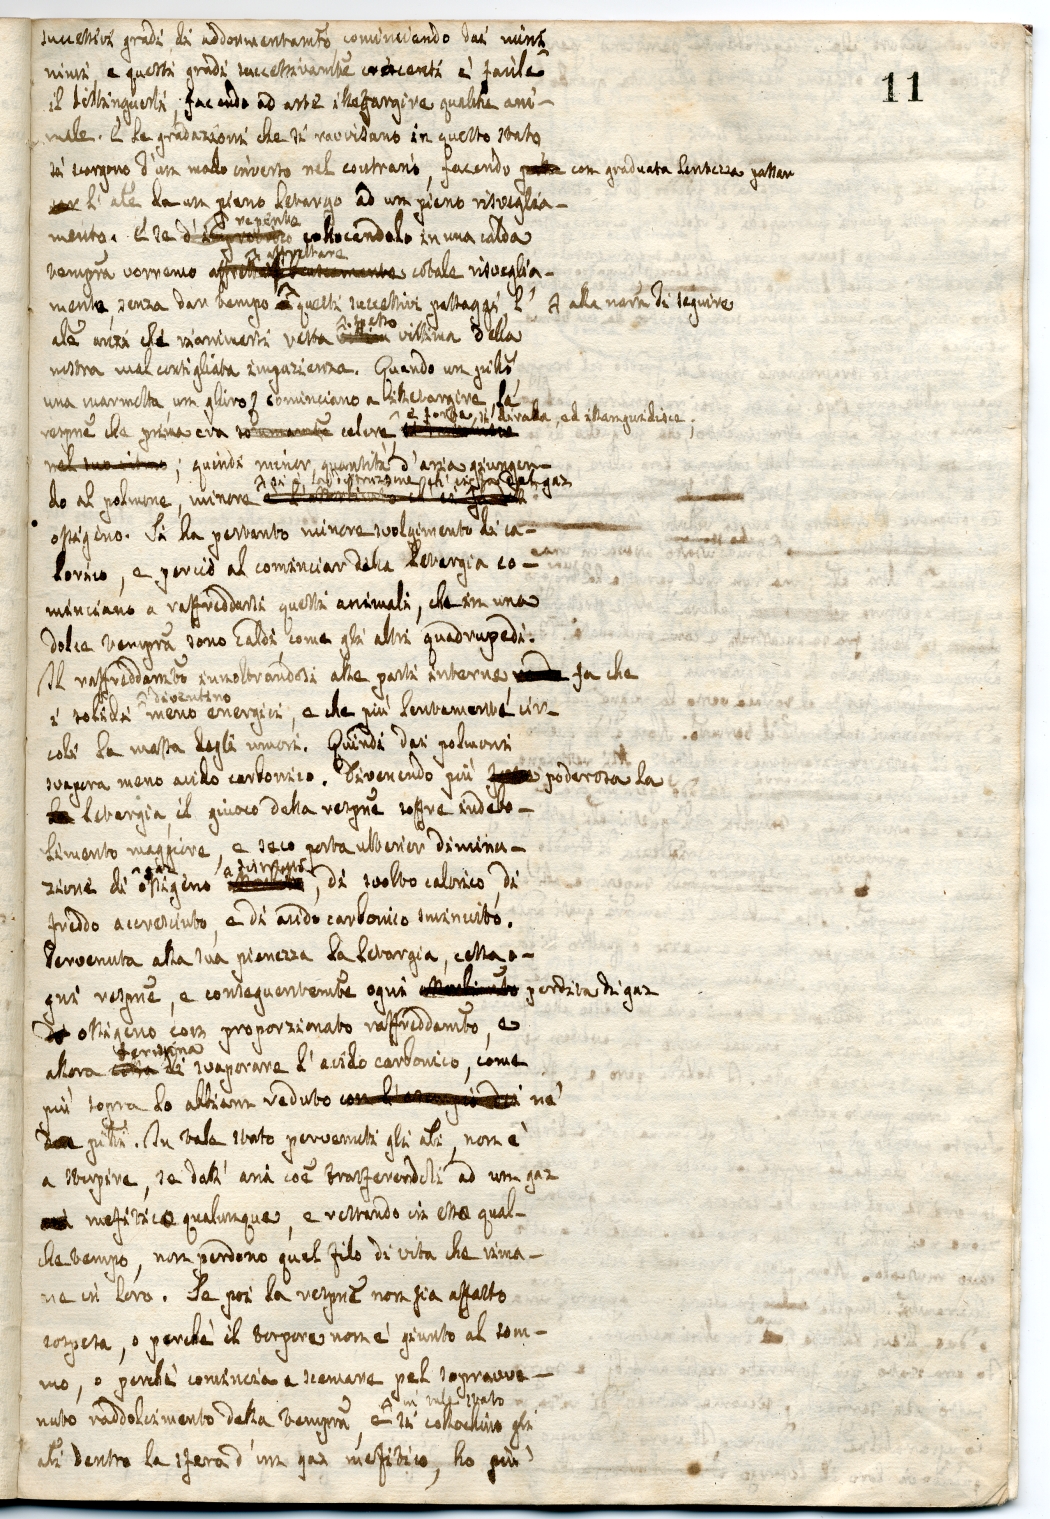 11
successivi gradi di addormentamto, cominciando dai mini
nimi, e questi gradi successivamte crescenti è facile
il distinguerli, facendo ad arte illetargire qualche ani-
male. E le gradazioni che si ravvisano in questo stato
si scorgono d'un modo inverso nel contrario, facendo con graduata lentezza passar
l'ale da un pieno letargo ad un pieno risveglia-
mento. E se d'improvviso repente collocandolo in una calda
tempra vorremo affrettare cotale risveglia-
mento, senza dar tempo a questi successivi passaggi l' alla norma di seguire
ale anzi che rianimarsi resta vittima della
nostra mal consigliata impazienza. Quando un pillo
una marmotta, un ghiro cominciano a illetargire, la
respne che prima era celere, si dirada, ed illanguidisce;
nel suo ritmo; quindi minor quantità d'aria giungen-
do al polmone, minore è la distruzione del gaz
ossigeno. Si ha pertanto minore svolgimento di ca-
lorico, e perciò al cominciar della letargia co-
minciano a raffreddarsi questi animali, che in una
dolce tempra sono caldi, come gli altri quadrupedi.
Il raffreddamto innoltrandosi alle parti interne, fa che
i solidi diventino meno energici, e che più lentamente cir-
coli la massa degli umori. Quindi dai polmoni
svapora meno acido carbonico. Divenendo più poderosa la
letargia, il giuoco della respne soffre indebo-
limento maggiore, e seco porta ulterior diminu-
zione di gaz ossigeno distrutto, di svolto calorico, di
freddo accresciuto, e di acido carbonico sminuito.
Pervenuta alla sua pienezza la letargia, cessa o-
gni respne, e conseguentemte ogni perdita di gaz
ossigeno con proporzionato raffreddamto, e
allora termina di svaporare l'acido carbonico, come
più sopra lo abbiam veduto ne'
In tale stato pervenuti gli ali, non è
a stupire, se dall'aria coe trasferendoli ad un gaz
mefitico qualunque, e restando in esso qual-
che tempo, non perdono quel filo di vita che rima-
ne in loro. Se poi la respne non sia affatto
sospesa, o perchè il torpore non è giunto al som-
mo, o perchè comincia a scemare pel sopravve-
nuto raddolcimento della tempra, e in tale stato si collochino gli
ali dentro la sfera d'un gaz mefitico, ho più